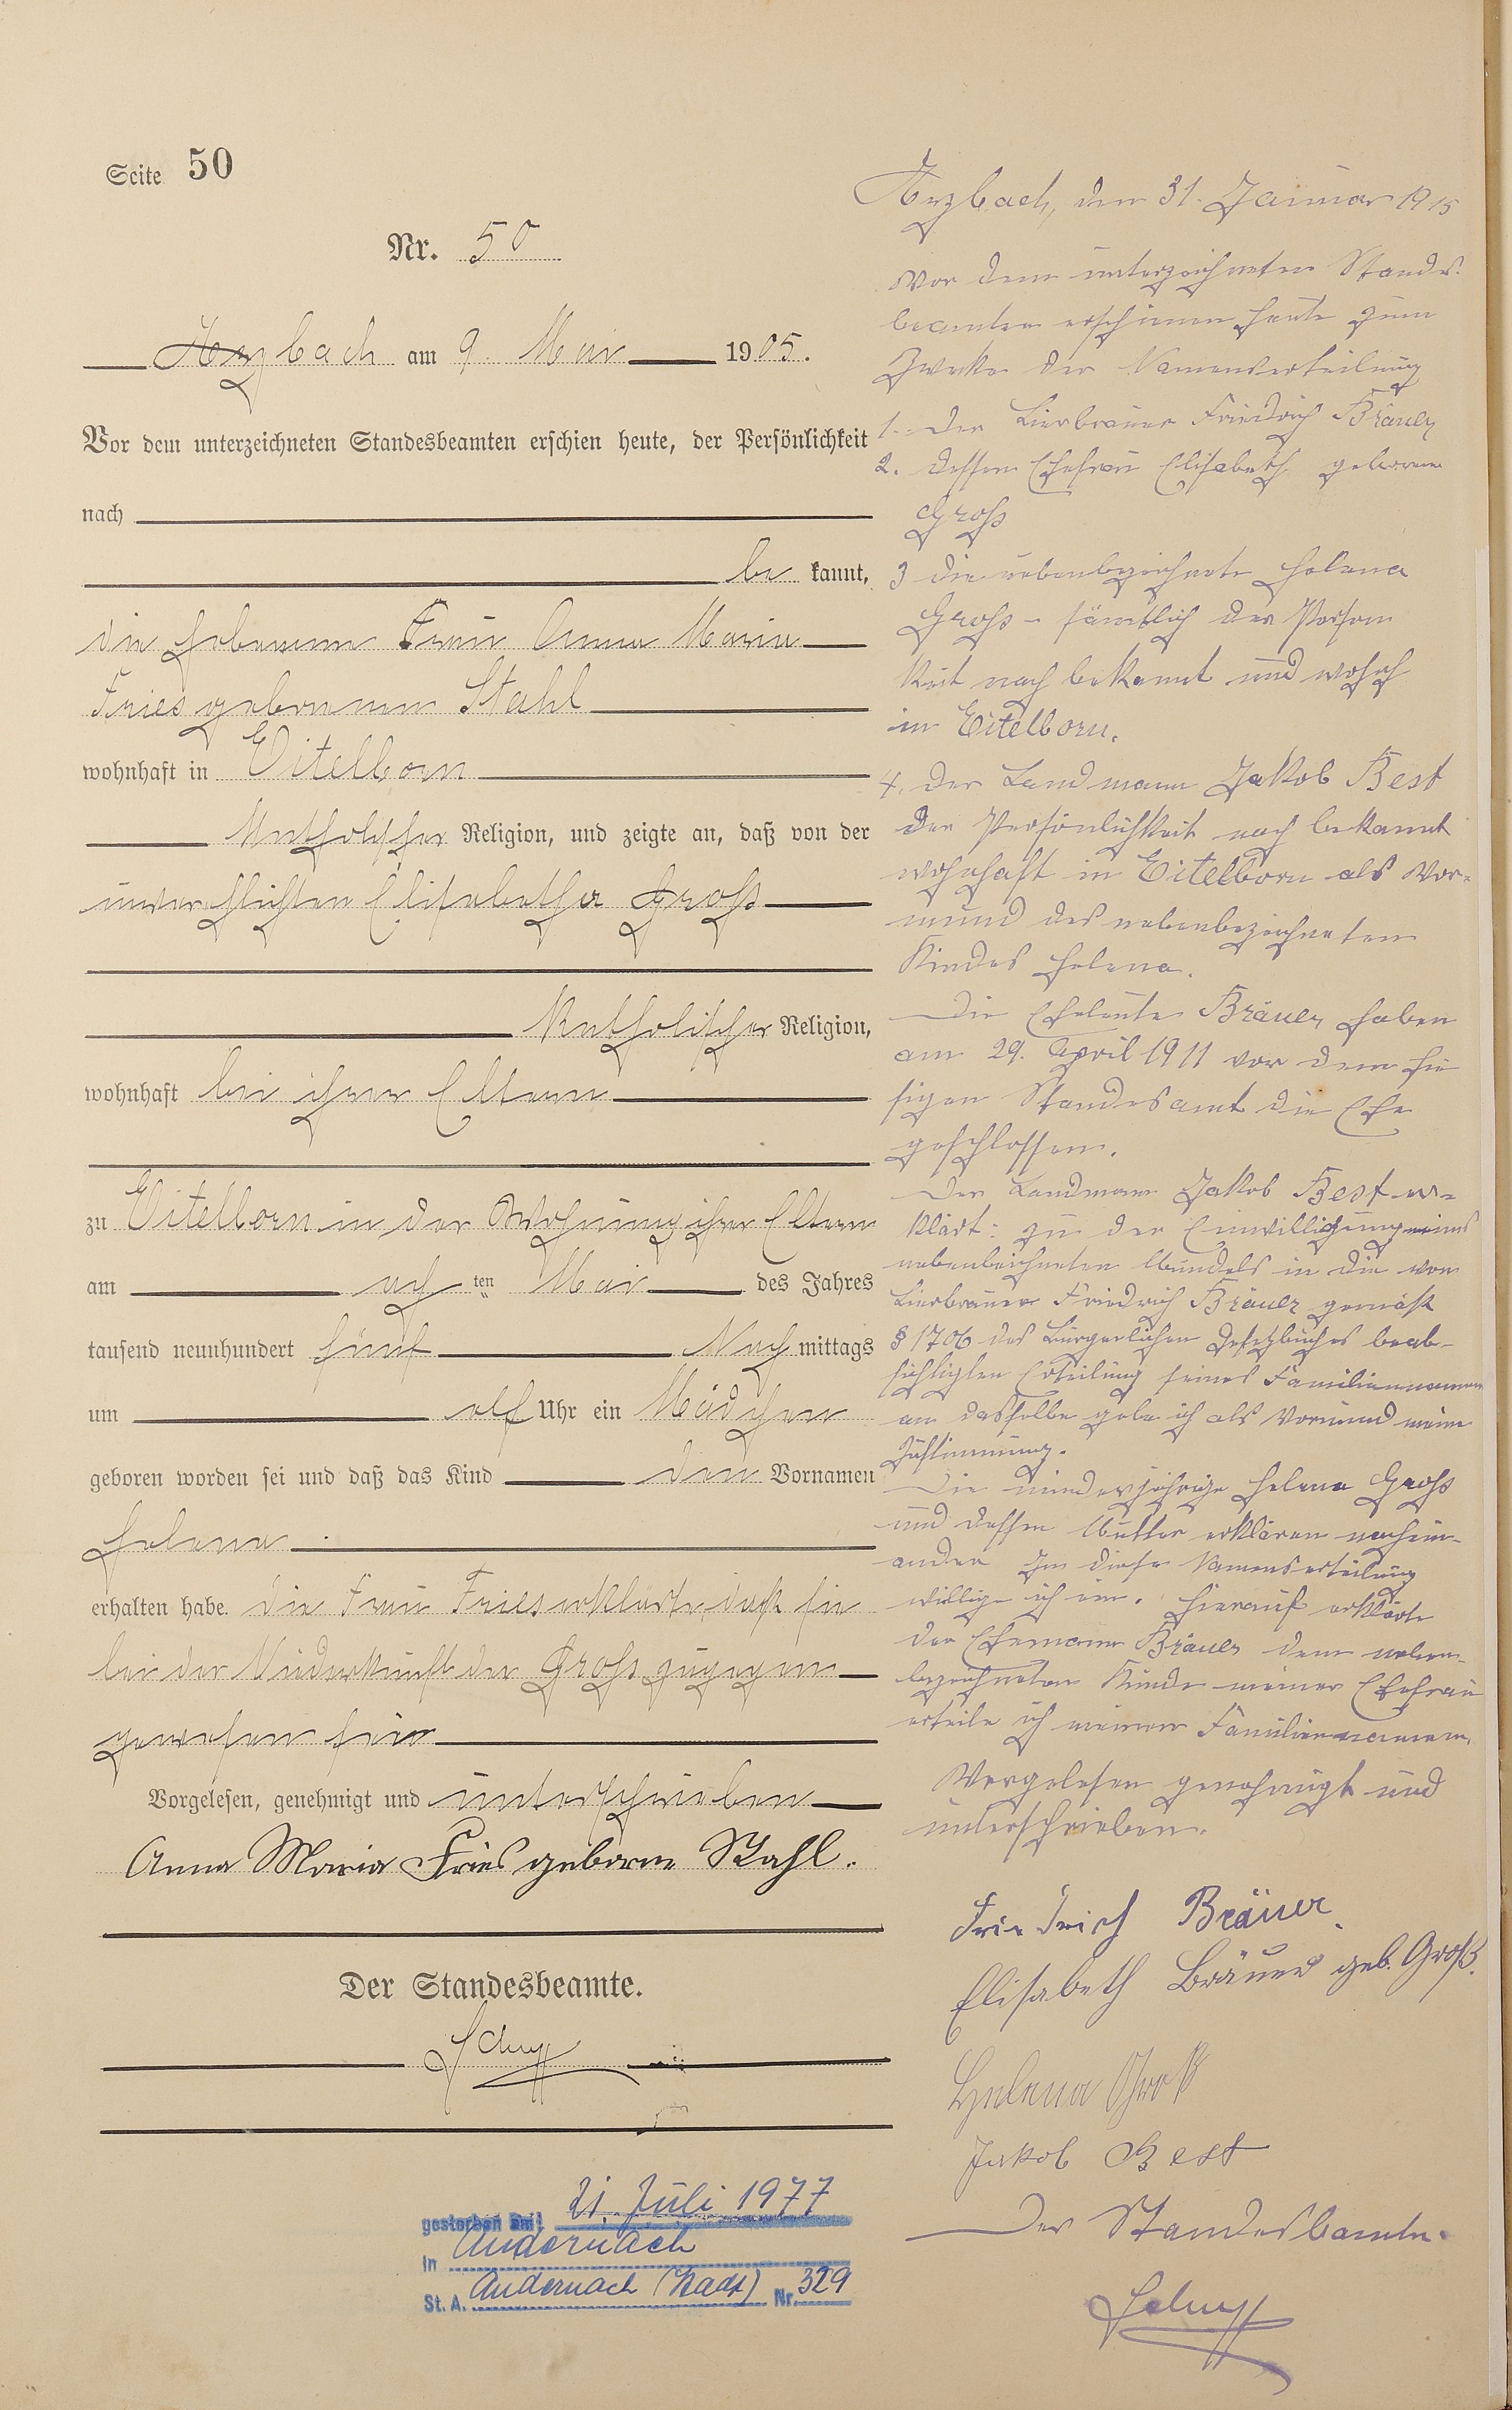 Seite 50
Nr. 50
Arzbach am 9. Mai 1905.
Vor dem unterzeichneten Standesbeamten erschien heute, der Persönlichkeit
nach
be kannt,
die Hebamme Frau Anna Maria
Fries geborenen Stahl
wohnhaft in Eitelborn
Katholischer Religion, und zeigte an, daß von der
unverehlichten Elisabetha Groß
Katholischer Religion,
wohnhaft bei ihren Eltern
zu Eitelborn in der Wohnung ihrer Eltern
am ach ten Mai des Jahres
tausend neunhundert fünf Nach mittags
um elf Uhr ein Mädchen
geboren worden sei und daß das Kind den Vornamen
Helena
erhalten habe. Die Frau Fries erklärte, daß sie
bei der Niederkunft der Groß zugegen
gewesen sei
Vorgelesen, genehmigt und unterschrieben
Anna Maria Fries geborne Stahl.
Der Standesbeamte.
gestorben am 21. Juli 1977
in Andernach
St. A. Andernach (Stadt) Nr. 329
Arzbach, den 31. Januar 1915
Vor dem unterzeichneten Standes-
beamten erschienen heute zum
Zwecke der Namenserteilung
1. Der Bierbrauer Friedrich Bräuer
2. dessen Ehefrau Elisabeth geborene
Groß
3 die nebenbezeichnete Helena
Groß – sämtlich der Person
keit nach bekannt und wohnh
in Eitelborn.
4. Der Landmann Jakob Best
der Persönlichkeit nach bekannt
wohnhaft in Eitelborn als Vor-
mund des nebenbezeichneten
Kindes Helena.
Die Eheleute Bräuer haben
am 29. April 1911 vor dem hie
sigen Standesamt die Ehe
geschlossen.
Der Landmann Jakob Best er-
klärt: zu der Einwilligung meines
nebenbezeichneten Mündels in die von
Bierbrauer Friedrich Bräuer gemäß
§ 1706 des Bürgerlichen Gesetzbuches beab-
sichtigten Erteilung seines Familiennamens
an dasselbe gebe ich als Vormund meine
Zustimmung.
Die minderjährige Helena Groß
und dessen Mutter erklären nachein-
ander In diese Namenserteilung
willige ich ein. Hierauf erklärte
der Ehemann Bräuer dem neben-
bezeichneten Kinde meiner Ehefrau
erteile ich meinen Familiennamen.
Vorgelesen genehmigt und
unterschrieben.
Friedrich Bräuer
Elisabeth Bräuer geb. Groß.
Helena Groß
Jakob Best
Der Standesbeamte.